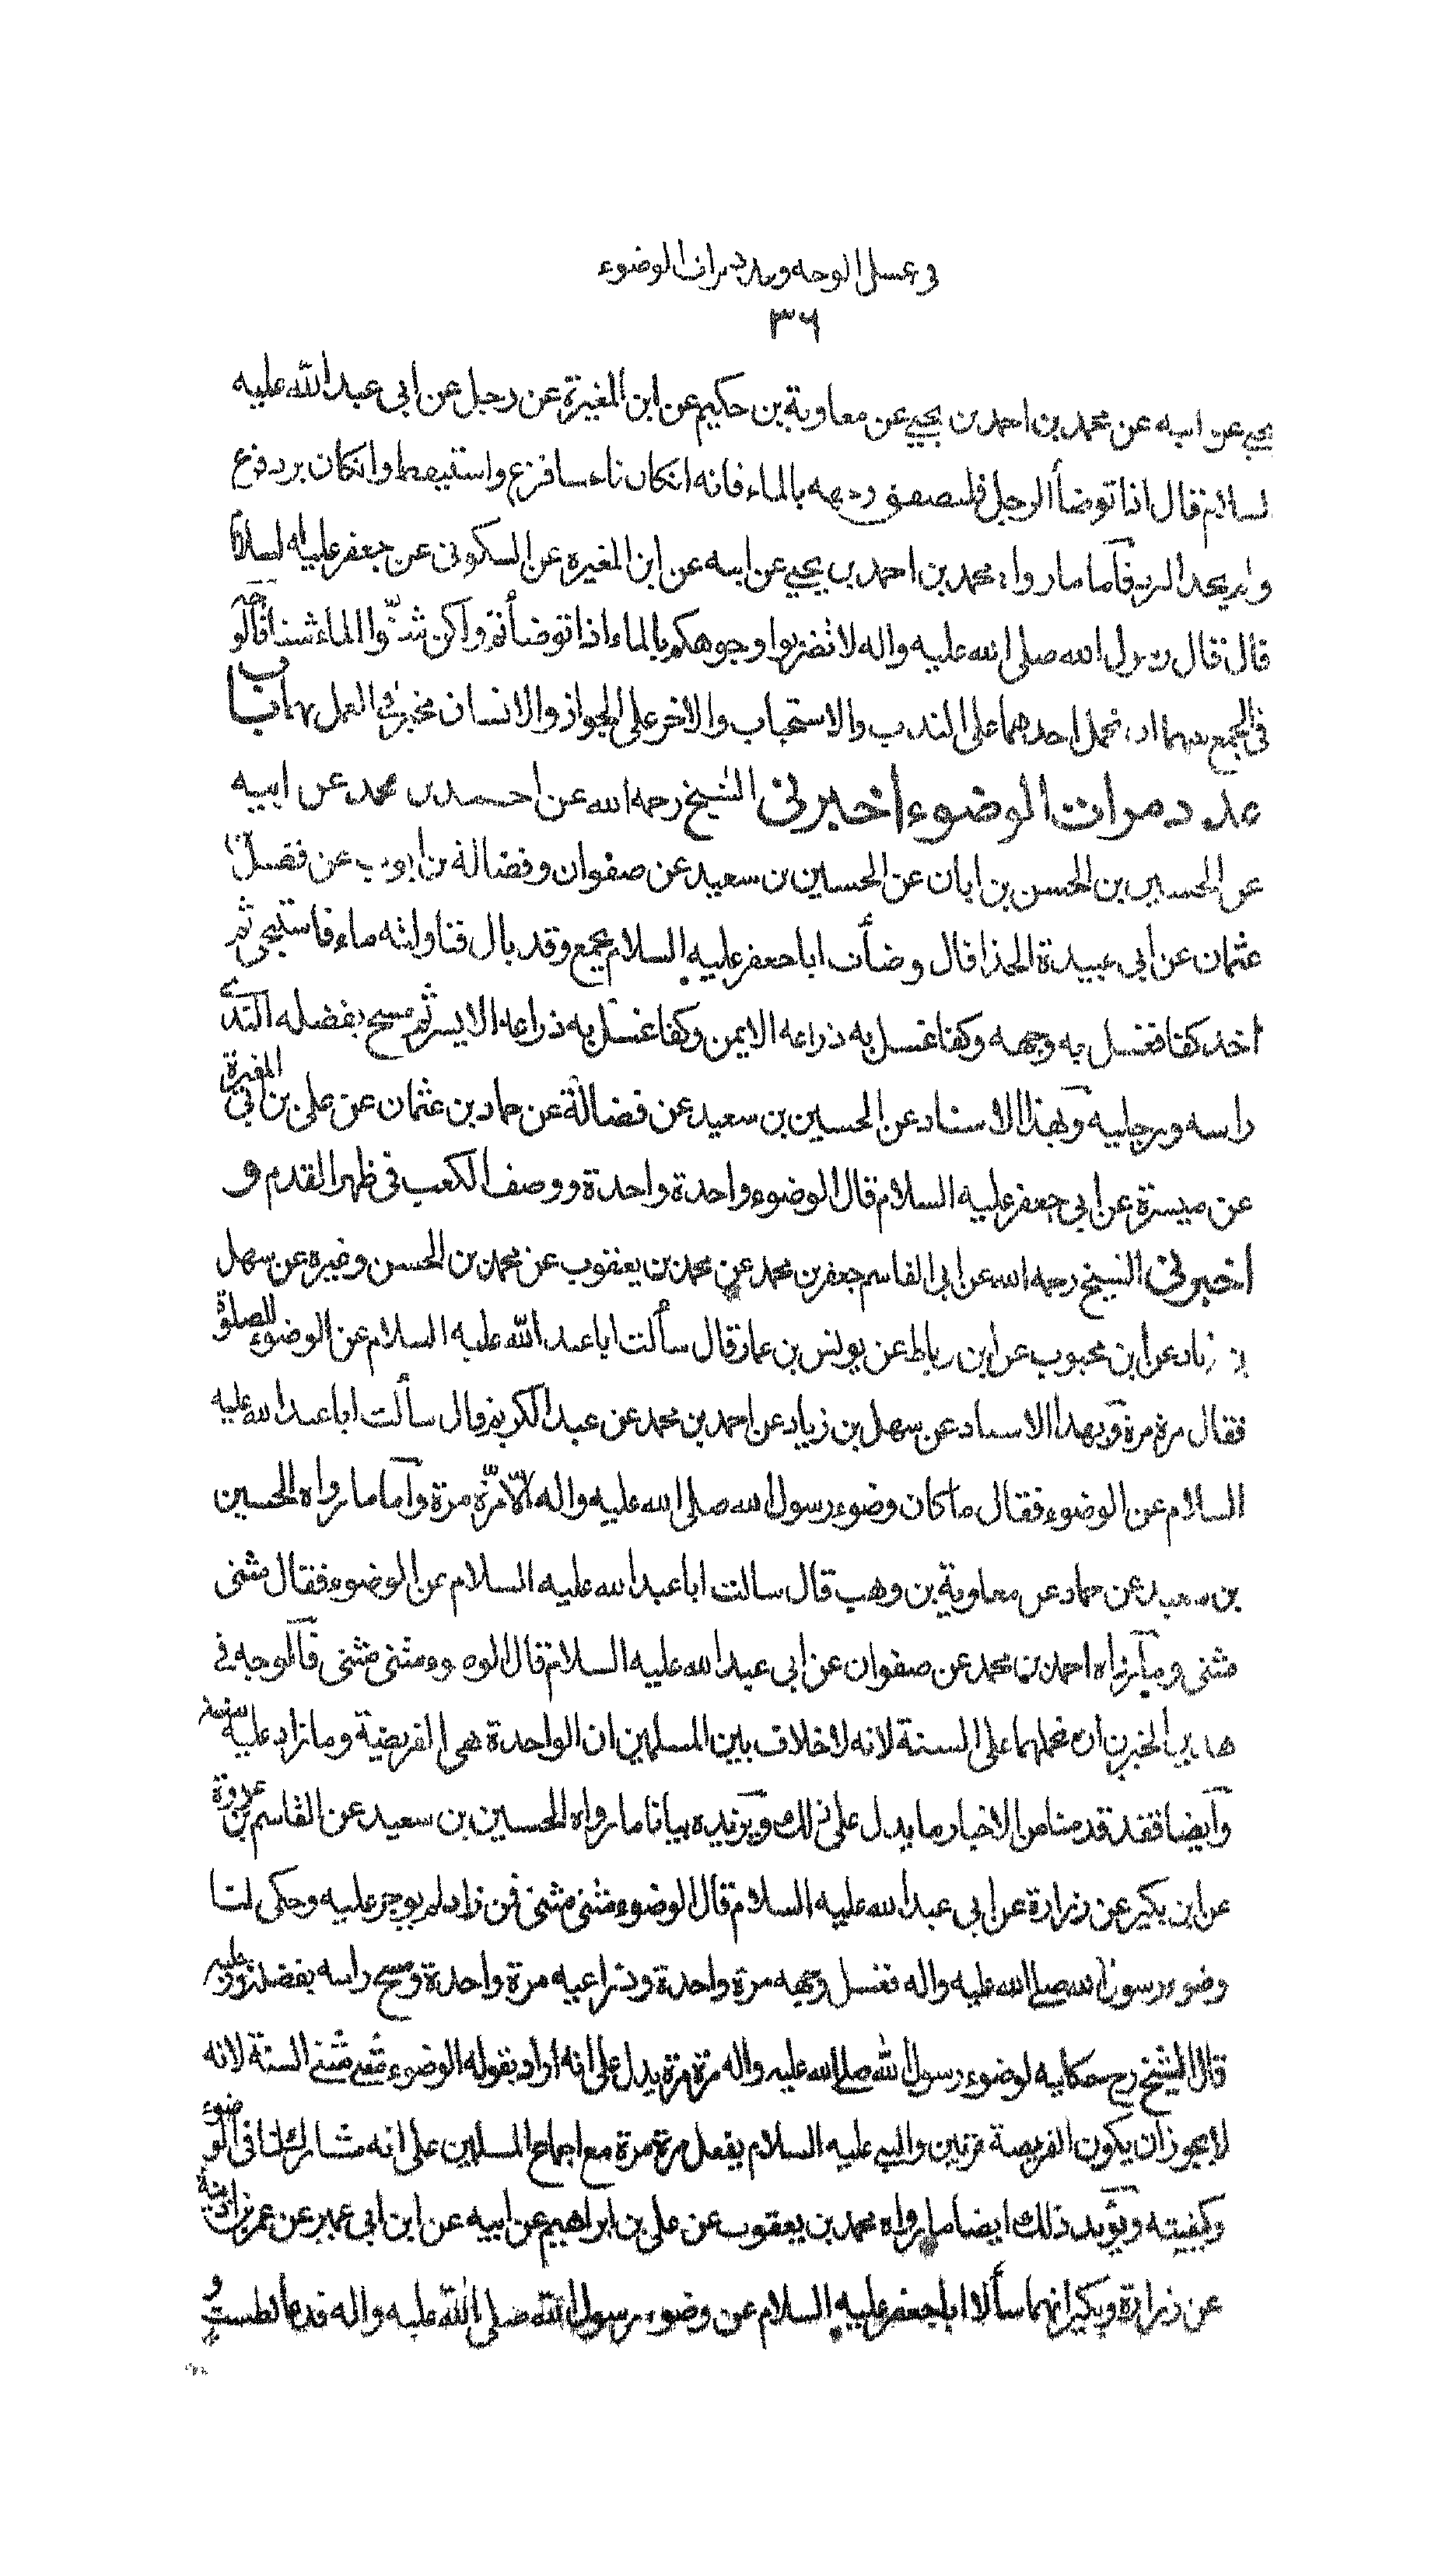 في غسل الوجه وعدد مرات الوضوء
٣٦
يحيى عن ابيه عن محمد بن احمد بن يحيى عن معاوية بن حكيم عن ابن المغيرة عن رجل عن ابي عبد الله عليه
لسلام قال اذا توضأ الرجل فليصفق وجهه بالماء فانه انكان ناعسا فزع واستيقظ وانكان برد فزع
ولم يجد البرد فأما ما رواه محمد بن احمد بن يحيى عن ابيه عن ابن المغيره عن السكوني عن جعفر عليه السلام
قال قال رسول الله صلى الله عليه واله لا تضربوا وجوهكم بالماء اذا توضأتم ولكن شنّوا الماء شنا فالوجه
في الجمع بينهما ان نحمل احدهما على الندب والاستحباب والاخر على الجواز والانسان مخير في العمل بهما باب
عدد مرات الوضوء اخبرني الشيخ رحمه الله عن احمد بن محمد عن ابيه
عن الحسين بن الحسن بن ابان عن الحسين بن سعيد عن صفوان وفضالة بن ايوب عن فضيل بن
عثمان عن ابي عبيدة الحذا قال وضأت ابا جعفر عليه السلام بجمع وقد بال فناولته ماء فاستنجى ثم
اخذ كفا فغسل به وجهه وكفا غسل به ذراعه الايمن وكفا غسل به ذراعه الايسر ثم مسح بفضله الندى
راسه ورجليه وبهذا الاسناد عن الحسين بن سعيد عن فضالة عن حماد بن عثمان عن علي بن ابي المغيرة
عن ميسرة عن ابي جعفر عليه السلام قال الوضوء واحدة واحدة ووصف الكعب في ظهر القدم و
اخبرني الشيخ رحمه الله عن ابي القاسم جعفر بن محمد عن محمد بن يعقوب عن محمد بن الحسن وغيره عن سهل
بن زياد عن ابن محبوب عن ابن رباط عن يونس بن عمار قال سألت ابا عبد الله عليه السلام عن الوضوء للصلوة
فقال مرة مرة وبهذا الاسناد عن سهل بن زياد عن احمد بن محمد عن عبد الكريم قال سألت ابا عبد الله عليه
السلام عن الوضوء فقال ما كان وضوء رسول الله صلى الله عليه واله الّا مرّة مرة وأما ما رواه الحسين
بن سعيد عن حماد عن معاوية بن وهب قال سالت ابا عبد الله عليه السلام عن الوضوء فقال مثنى
مثنى وما رواه احمد بن محمد عن صفوان عن ابي عبد الله عليه السلام قال الوضوء مثنى مثنى فالوجه في
هذين الخبرين ان نحملهما على السنة لانه لا خلاف بين المسلمين ان الواحدة هي الفريضة وما زاد عليه سنة
وأيضا فقد قدمنا من الاخبار ما يدل على ذلك ويزيده بيانا ما رواه الحسين بن سعيد عن القاسم بن عروة
عن ابن بكير عن زرارة عن ابي عبد الله عليه السلام قال الوضوء مثنى مثنى فمن زاد لم يوجر عليه وحكى لنا
وضوء رسول الله صلى الله عليه واله فغسل وجهه مرة واحدة وذراعيه مرة واحدة ومسح راسه بفضل وضوئه ورجليه
قال الشيخ رح حكايته لوضوء رسول الله صلى الله عليه واله مرة مرة يدل على انه اراد بقوله الوضوء مثنى مثنى السنة لانه
لا يجوز أن يكون الفريضة مرتين والنبي عليه السلام يفعل مرة مرة مع اجماع المسلمين على انه مشارك لنا في الوضوء
وكيفيته ويؤيد ذلك ايضا ما رواه محمد بن يعقوب عن علي بن ابراهيم عن ابيه عن ابن ابي عمير عن عمر بن اذينة
عن زرارة وبكير انهما سألا ابا جعفر عليه السلام عن وضوء رسول الله صلى الله عليه واله فدعا بطست و